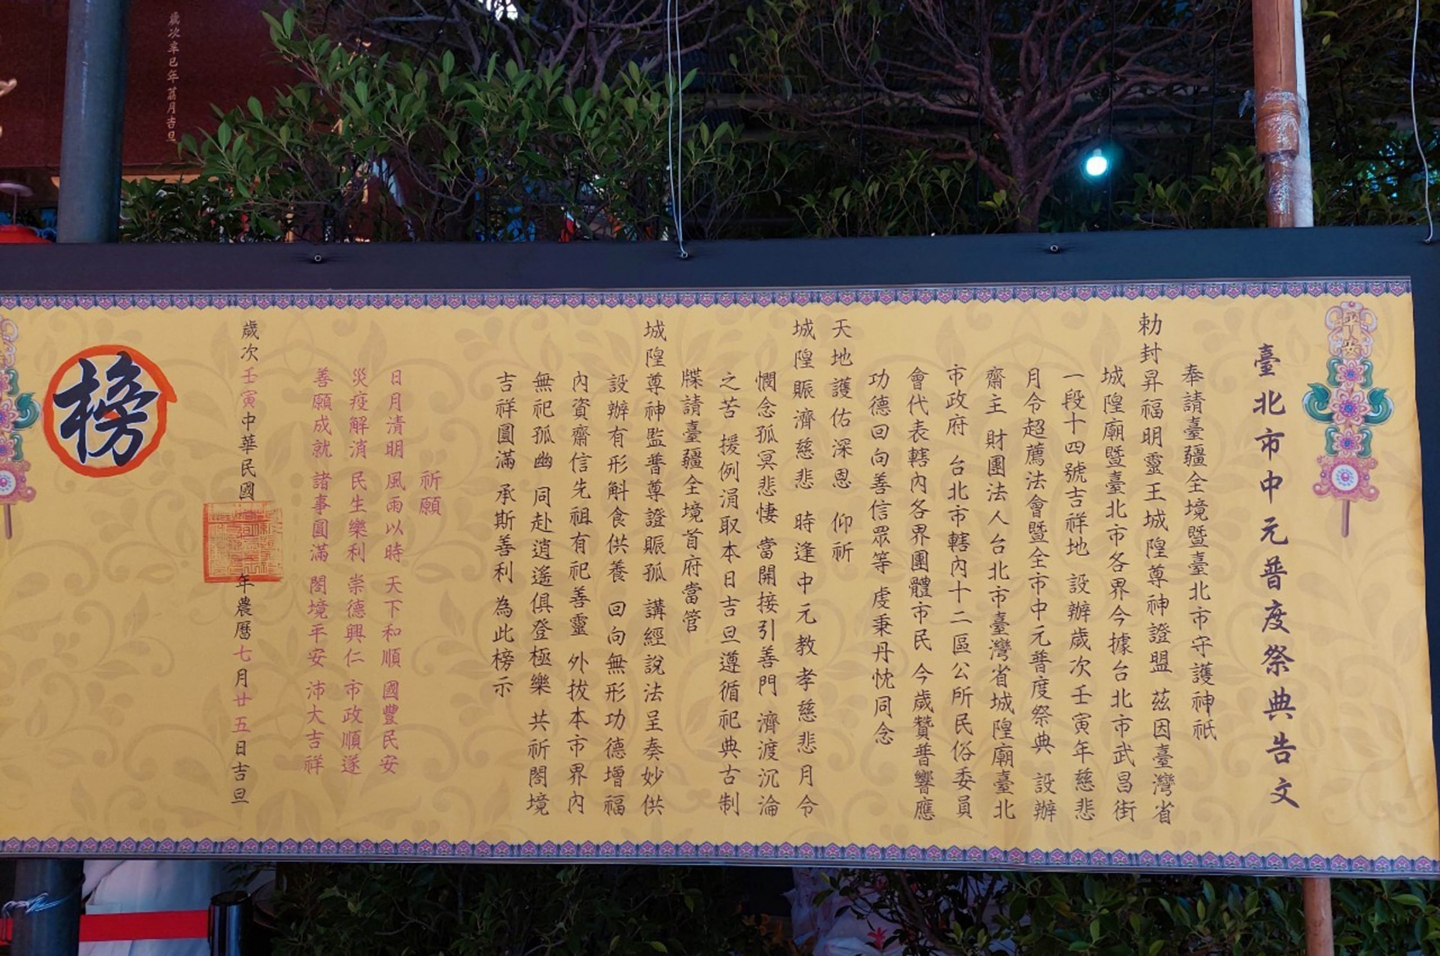 臺北市中元普度祭典告文
奉請臺疆全境暨臺北市守護神祇
勅封昇福明靈王城隍尊神證盟 茲因臺灣省
城隍廟暨臺北市各界今據台北市武昌街
一段十四號吉祥地 設辦歲次壬寅年慈悲
月令超薦法會暨全市中元普度祭典 設辦
齋主 財團法人台北市臺灣省城隍廟臺北
市政府 台北市轄內十二區公所民俗委員
會代表轄內各界團體市民 今歲贊普響應
功德回向善信眾等 虔秉丹忱同念
天地護佑深恩 仰祈
城隍賑濟慈悲 時逢中元教孝慈悲月令
憫念孤冥悲悽 當開接引善門 濟渡沉淪
之苦 援例涓取本日吉旦遵循祀典古制
牒請臺疆全境首府當管
城隍尊神監普尊證賑孤 講經說法呈奏妙供
設辦有形斛食供養 回向無形功德增福
內資齋信先祖有祀善靈 外拔本市界內
無祀孤幽 同赴逍遙俱登極樂 共祈閤境
吉祥圓滿 承斯善利 為此榜示
祈願
日月清明 風雨以時 天下和順 國豐民安
災疫解消 民生樂利 崇德興仁 市政順遂
善願成就 諸事圓滿 閤境平安 沛大吉祥
歲次壬寅中華民國 年農曆七月廿五日吉旦
榜
歲次辛巳年荔月吉旦